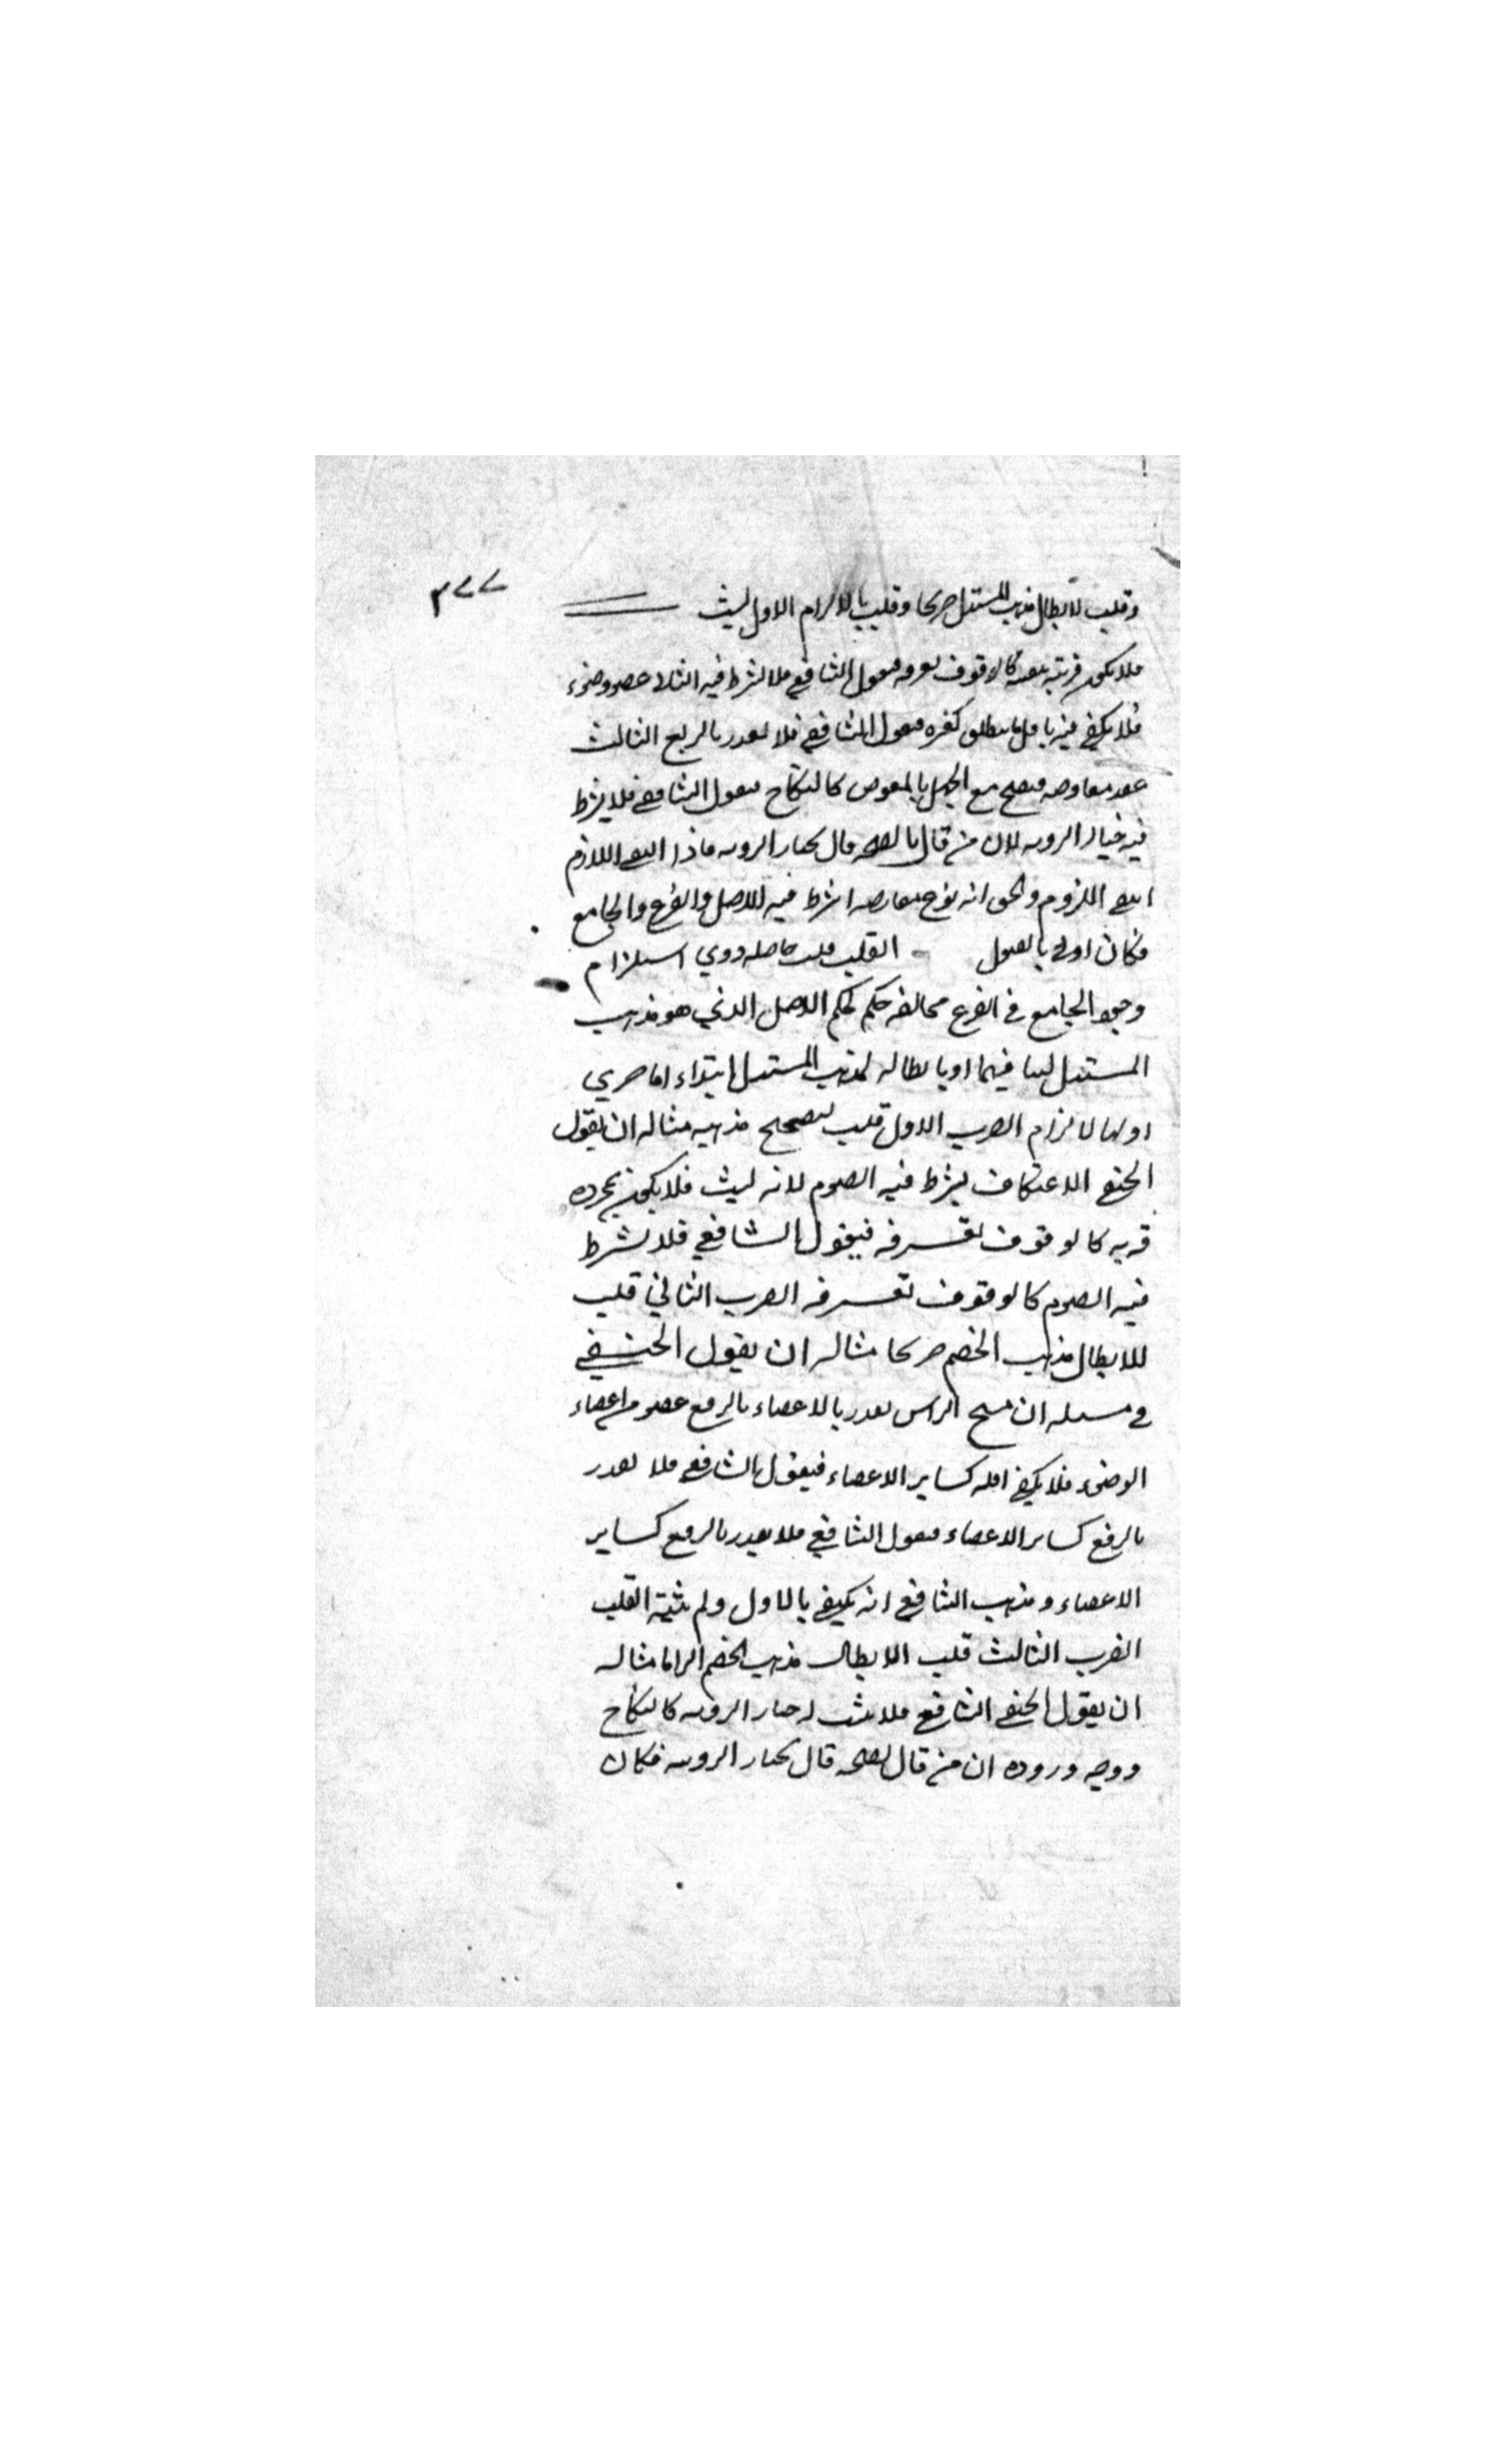 ٣٧٧
وقلب لابطال مذهب المستدل صريحا وقلب بالالزام الاول لبث
فلا يكون قربة بنفسه كالوقوف بعرفه فيقول الشافعي فلا يشترط فيه الثاني عضو وضوء
فلا يكفي فيه باقل ما ينطلق كغيره فيقول الشافعي فلا يقدر بالربع الثالث
عقد معاوضه فيصح مع الجهل بالمعوض كالنكاح فيقول الشافعي فلا يشترط
فيه خيار الرويه لان من قال بالصحه قال بخيار الرويه فاذا انتفى اللازم
انتفى الملزوم والحق انه نوع معارضه اشترط فيه الاصل والفرع والجامع
فكان اولى بالقبول القلب قلب حاصله دعوى استلزام
وجود الجامع في الفرع مخالفه حكم لحكم الاصل الذي هو مذهب
المستدل فيهما او بابطاله لمذهب المستدل ابتداء اما صريحا
الالزام الضرب الاول قلب لتصحيح مذهبه مثاله ان يقول
الحنفي الاعتكاف يشترط فيه الصوم لانه لبث فلا يكون بمجرده
قربه كالوقوف بعرفه فيقول الشافعي فلا يشترط
فيه الصوم كالوقوف بعرفه الضرب الثاني قلب
للابطال مذهب الخصم صريحا مثاله ان يقول الحنفي
في مسله ان مسح الراس يقدر بالربع عضو من اعضاء
الوضوء فلا يكفي اقله كساير الاعضاء فيقول الشافعي فلا يقدر
بالربع كساير الاعضاء فيقول الشافعي فلا يقدر بالربع كساير
الاعضاء ومذهب الشافعي انه يكفي بالاول ولم يثبته القلب
الضرب الثالث قلب الابطال مذهب الخصم الزاما مثاله
ان يقول الحنفي الشافعي فلا يثبت له خيار الرويه كالنكاح
ووجه وروده ان من قال بصحه قال بخيار الرويه فكان